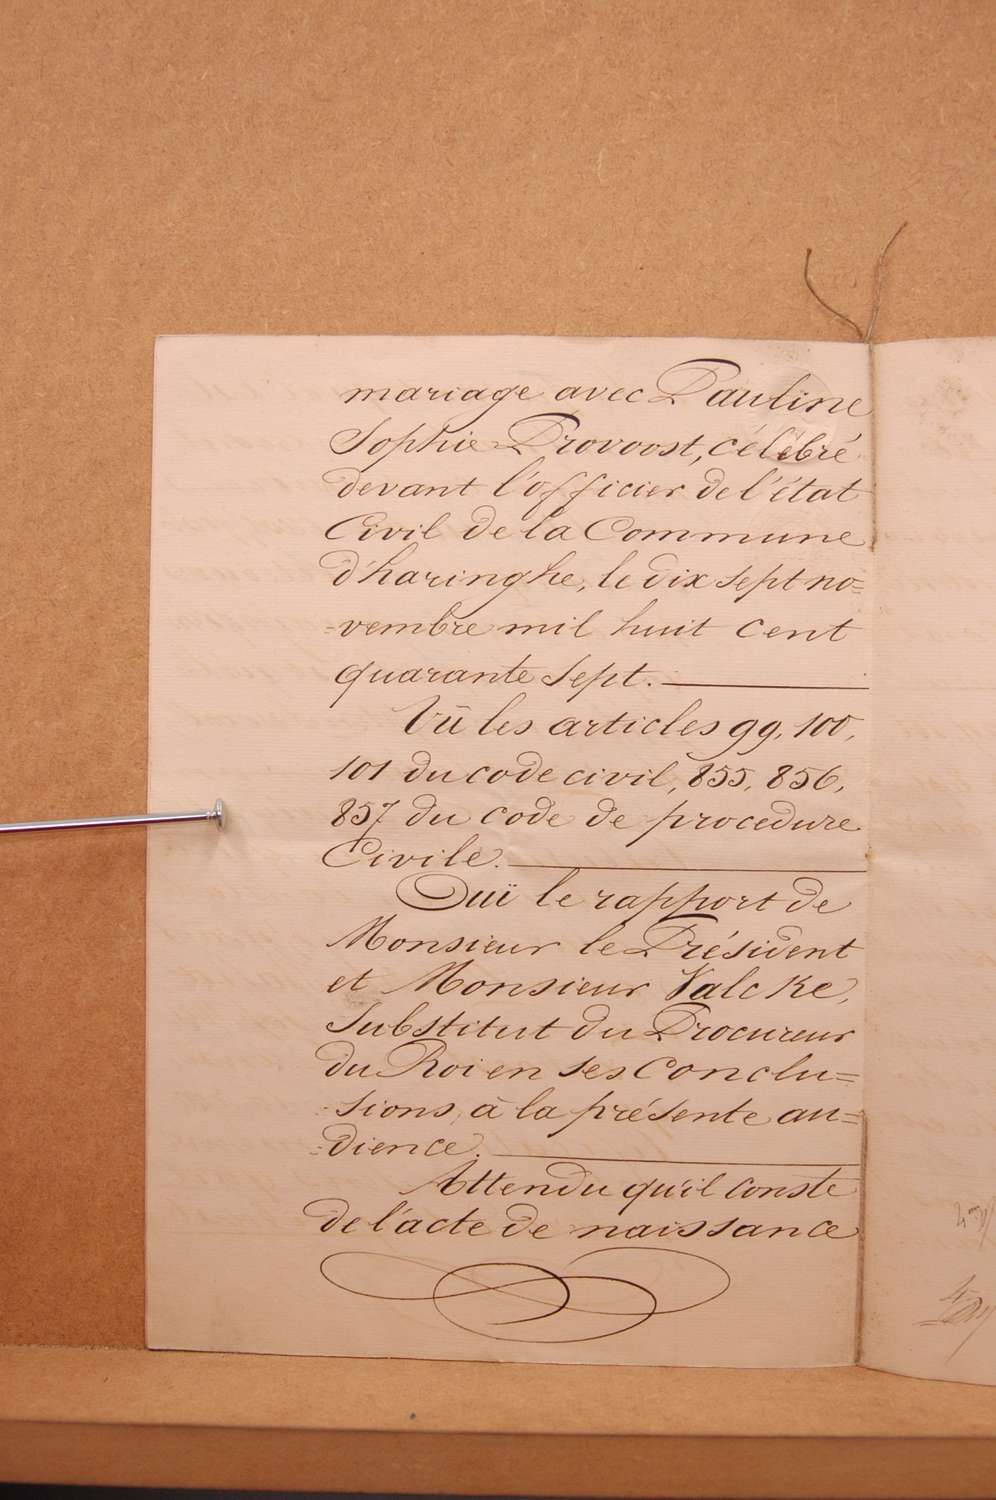 mariage avec Pauline
Sophie Provoost, célébré
devant l'officier de l'état
Civil de la Commune
d'haringhe, le dix sept no=
=vembre mil huit cent
quarante sept.
Vû les articles 99, 100,
101 du code civil, 855, 856,
857 du code de procedure
Civile.
Ouï le rapport de
Monsieur le Président
et Monsieur Valcke,
Substitut du Procureur
du Roi en ses Conclu=
=sions, à la présente au=
=dience.
Attendu qu'il conste
de l'acte de naissance